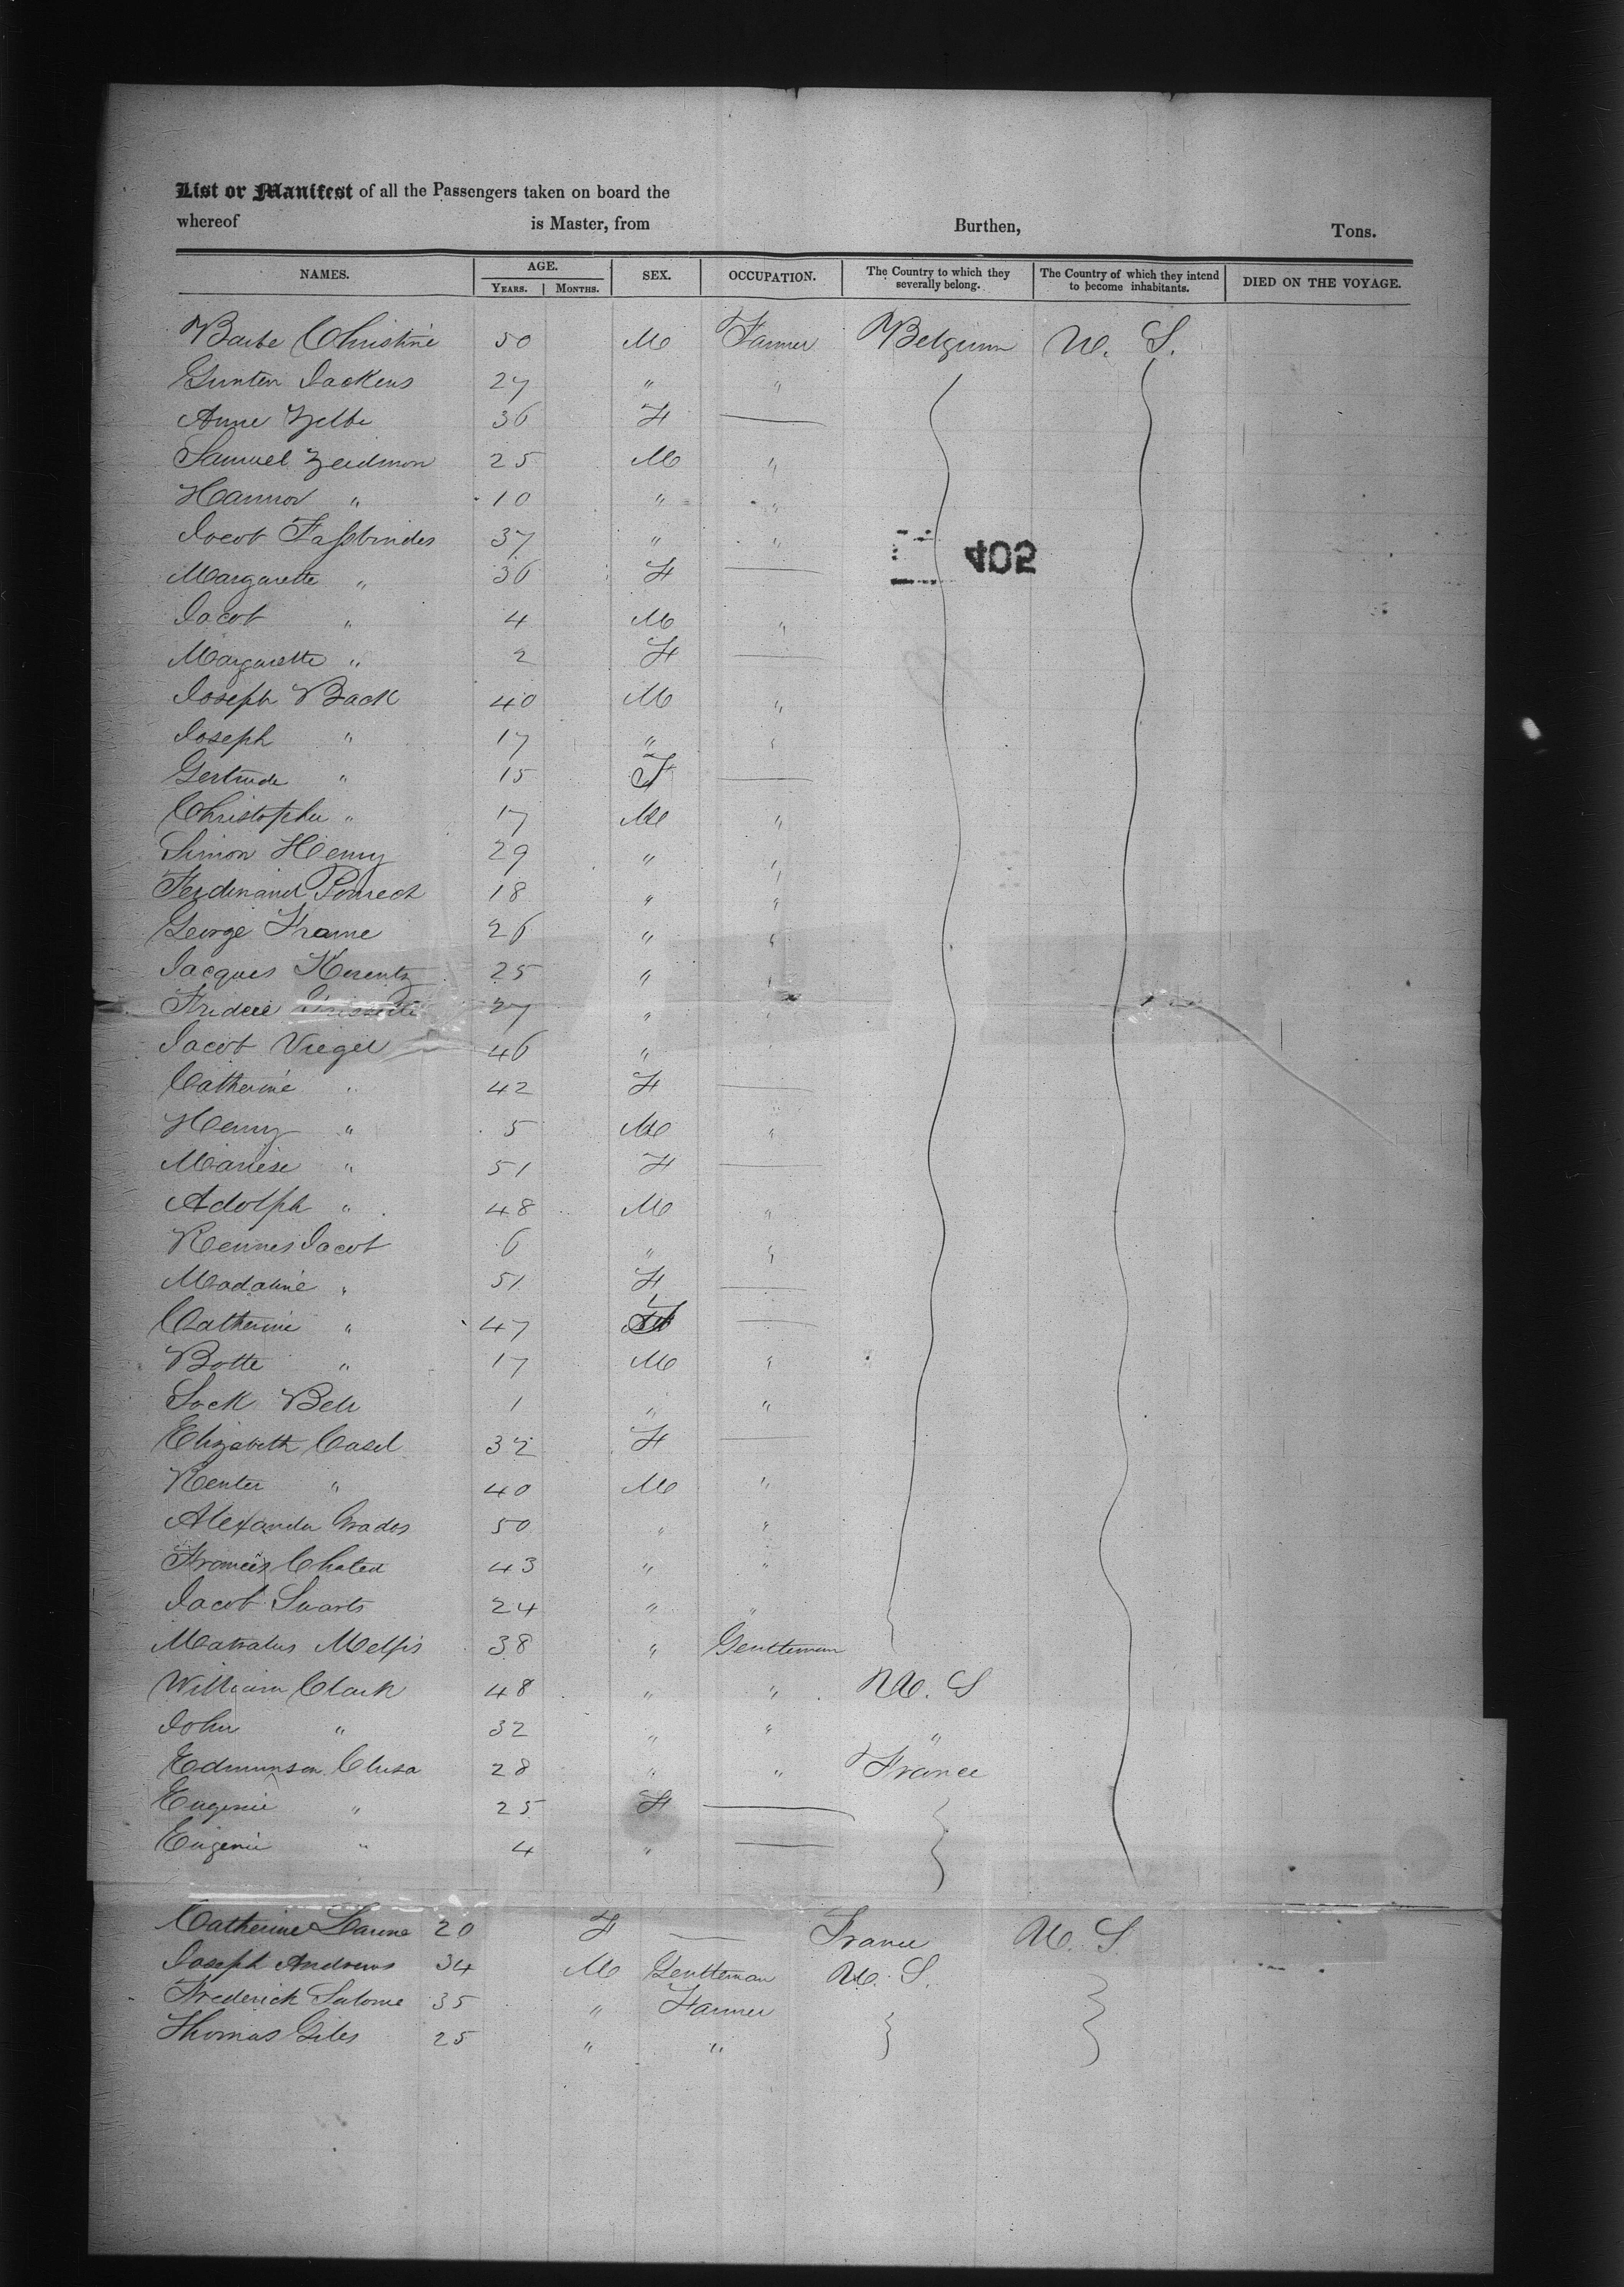 List or Manifest of all the Passengers taken on board the
whereof is Master, from Burthen, Tons.
NAMES. AGE. YEARS. MONTHS. SEX. OCCUPATION. The Country to which they severally belong. The Country of which they intend to become inhabitants. DIED ON THE VOYAGE.
Barbe Christine 50 M Farmer Belgium U. S.
Gunten Jackens 27 " "
Anne Zelbe 36 F —
Samuel Zeidmon 25 M "
Hannor " 10 " "
Jocob Faßbindes 37 " "
402
Margarette " 36 F —
Jacob " 4 M "
Margarette " 2 F —
Joseph Back 40 M "
Joseph " 17 " "
Gertrude " 15 F —
Christopher " 17 M "
Simon Henry 29 " "
Ferdinand 18 " "
George Frame 26 " "
Jacques Kerentz 25 " "
27 " "
Jacob Viegel 46 " "
Catherine " 42 F —
Henry " 5 M "
Mariese " 51 F —
Adolph " 48 M "
Rennes Jacob 6 " "
Madaline " 51 F —
Catherine " 47 F —
Botte " 17 M "
Sock Bell 1 " "
Elizabeth Casel 32 F —
Renter " 40 M "
Alexander Grados 50 " "
Francis Chated 43 " "
Jacob Swarts 24 " "
Melfis 38 " Gentleman
William Clark 48 " " U. S
John " 32 " " "
Edmunson Clusa 28 " " France
Eugenie " 25 F —
Eugenie " 4 " —
Catherine Hanne 20 F — France U. S.
Joseph Andrews 34 M Gentleman U. S.
Frederick Salome 35 " Farmer
Thomas Giles 25 " "